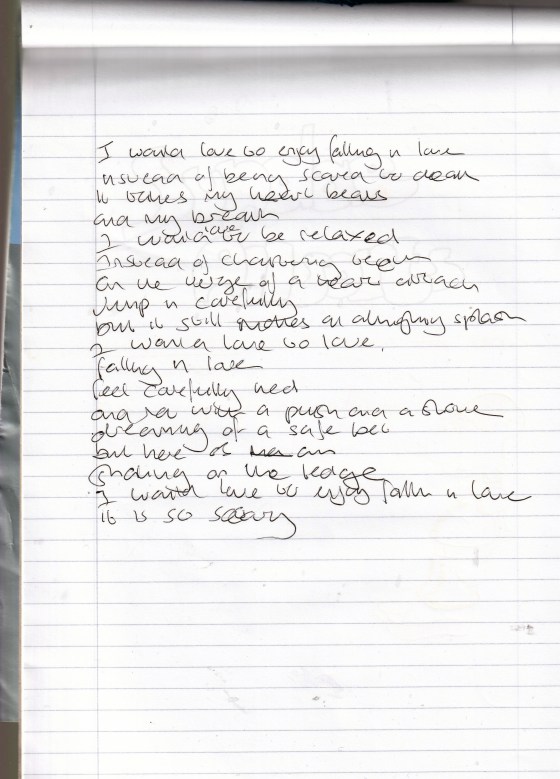 I would love to enjoy falling in love
instead of being scared to death
it takes my heart beats
and my breath
I would love to be relaxed
Instead of chattering teeth
On the verge of a heart attack
Jump in carefully
but it still makes an almighty splash
I would love to love,
falling in love
feel carefully
and yet with a push and a shove
dreaming of a safe bet
but here I am
Standing on the ledge
I would love to enjoy fallin in love
it is so scary